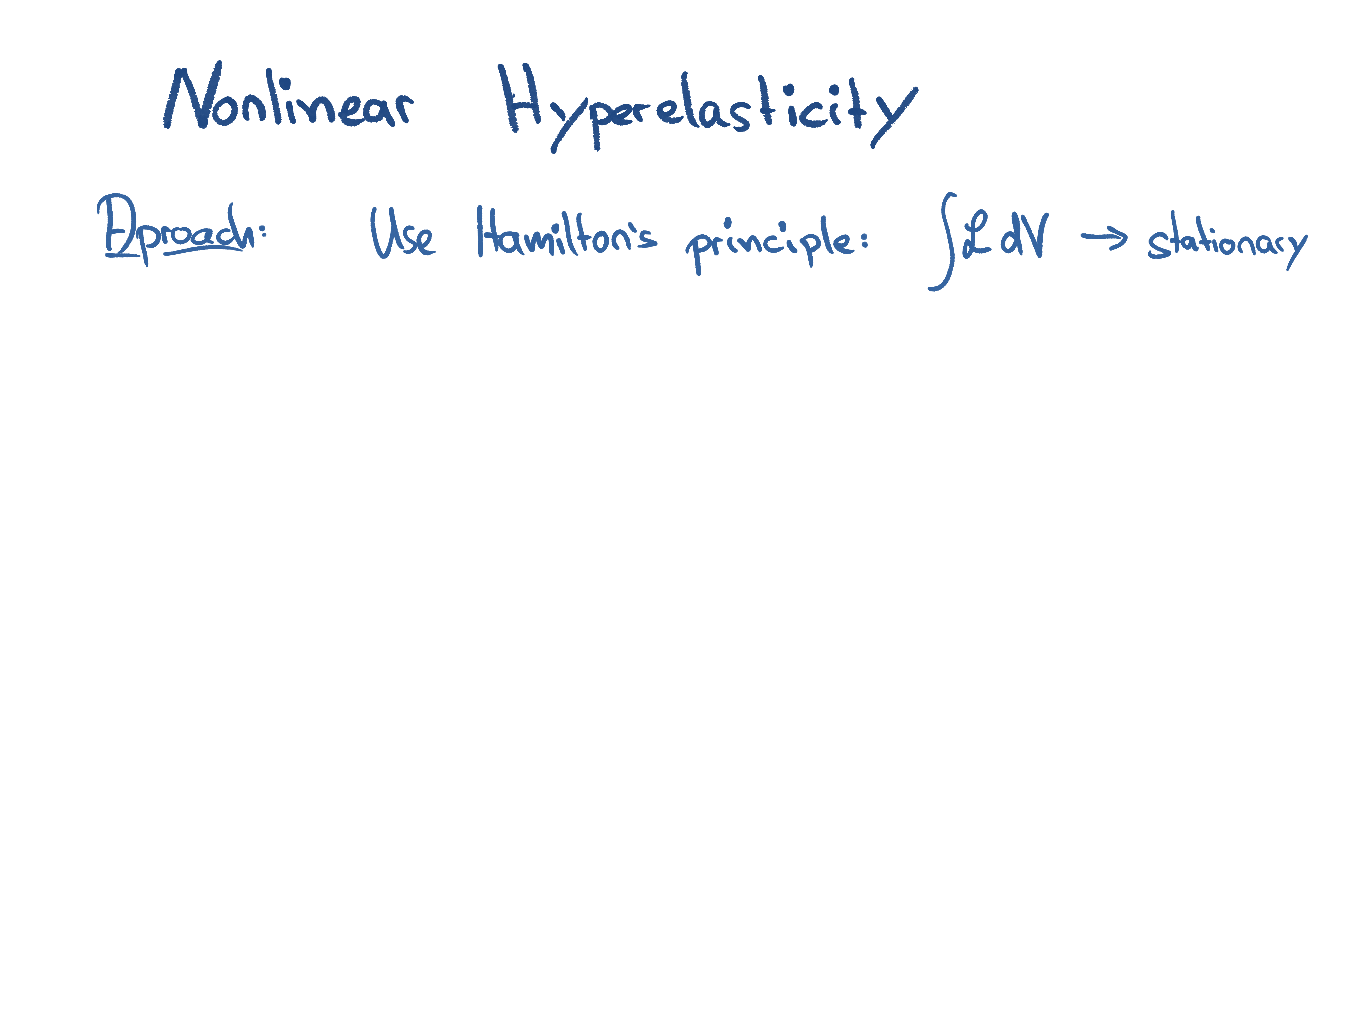 Nonlinear Hyperelasticity
Aproach: Use Hamilton's principle: ∫ℒ dV → stationary